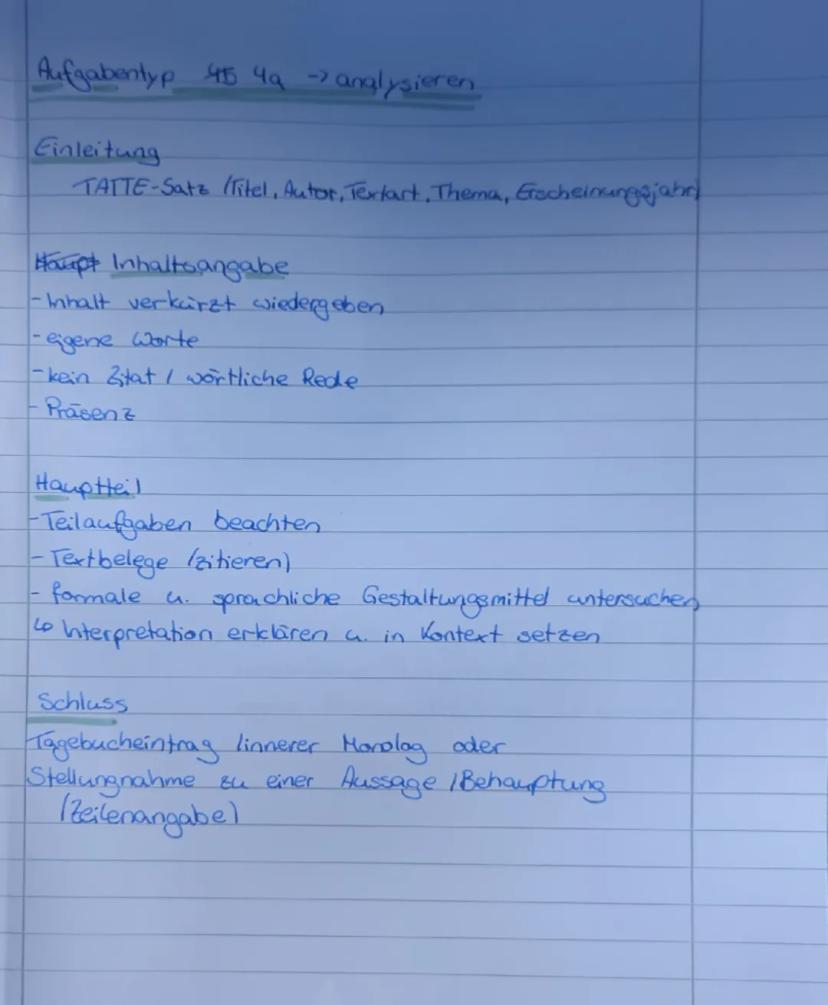 Aufgabentyp 4a -> analysieren
Einleitung
TATTE-Satz (Titel, Autor, Textart, Thema, Erscheinungsjahr)
Inhaltsangabe
- Inhalt verkürzt wiedergeben
- eigene Worte
- kein Zitat / wörtliche Rede
- Präsenz
Hauptteil
- Teilaufgaben beachten
- Textbelege (zitieren)
- formale u. sprachliche Gestaltungsmittel untersuchen
↳ Interpretation erklären u. in Kontext setzen
Schluss
Tagebucheintrag / innerer Monolog oder
Stellungnahme zu einer Aussage / Behauptung
(Zeilenangabe)